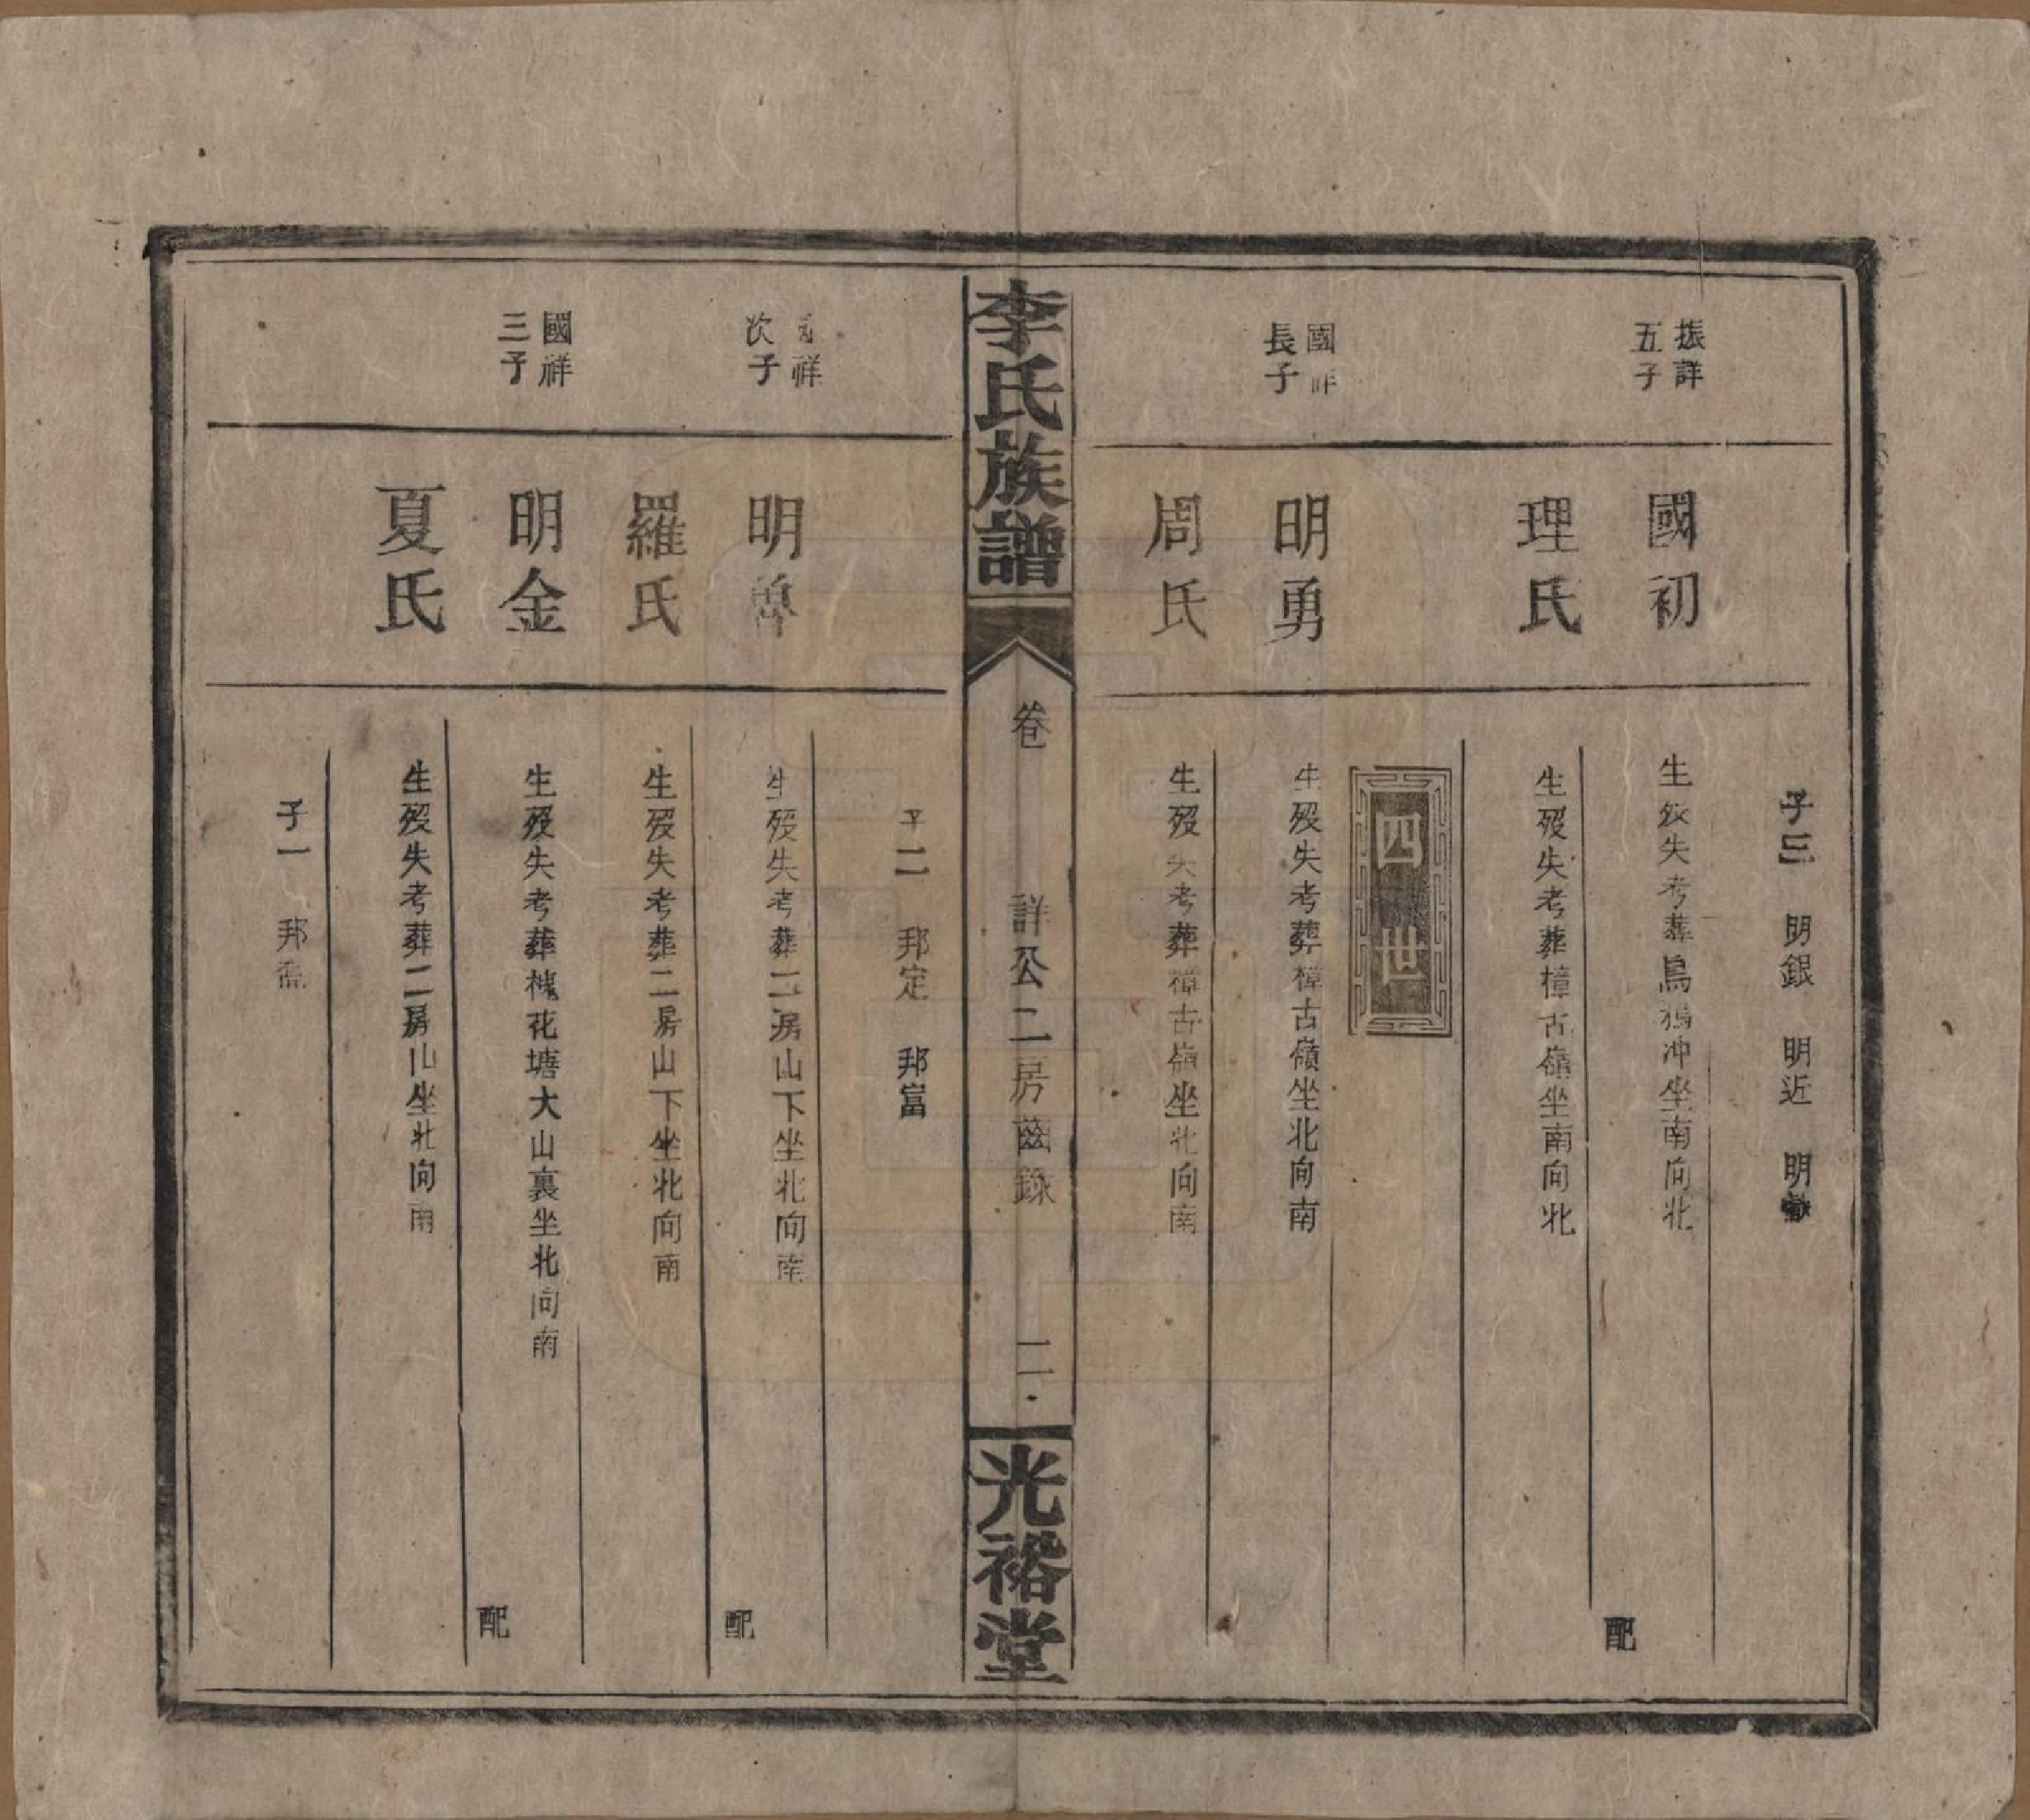 子三 明銀 明近 明
振詳
五子
國初
生歿失考葬烏鴉冲坐南向北
配
理氏
生歿失考葬樟古嶺坐南向北
四世
國祥
長子
明勇
生歿失考葬樟古嶺坐北向南
周氏
生歿失考葬樟古嶺坐北向南
李氏族譜
卷
詳公二房齒錄
二
光裕堂
子二 邦定 邦富
國祥
次子
明魯
生歿失考葬二房山下坐北向南
配
羅氏
生歿失考葬二房山下坐北向南
國祥
三子
明金
生歿失考葬槐花塘大山裏坐北向南
配
夏氏
生歿失考葬二房山坐北向南
子一 邦